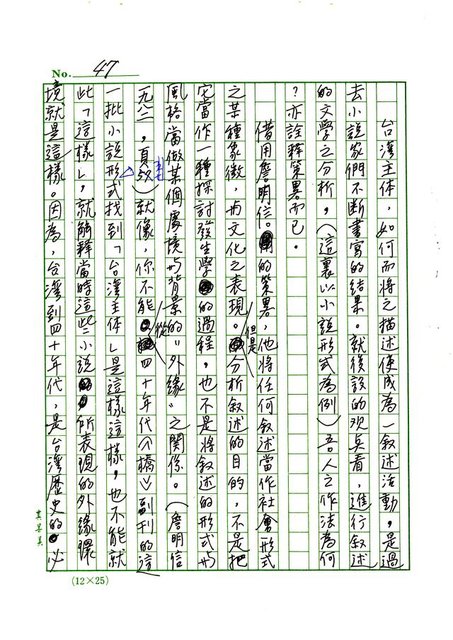 No. 47
台灣主体，如何而將之描述使成為一叙述活動，是過
去小說家們不斷書寫的結果。就後設的观点看，進行叙述
的文學之分析，（這裏以小說形式為例）吾人之作法為何
？亦詮釋策畧而已。
借用詹明信的策畧，他將任何叙述當作社會形式
之某種象徵，内文化之表現。但是分析叙述的目的，不是把
它當作一種探討發生學的過程，也不是將叙述的形式与
風格當做某個處境与背景的「外緣」之關係。（詹明信
一九八一，頁）就像，你不能從四十年代《橋》副刊的這
一批小說形式找到「台灣主体」是這樣這樣，也不能就
此「這樣」，就解釋當時這些小說所表現的外緣環
境就是這樣。因為，台灣到四十年代，是台灣歷史的必
(12×25)